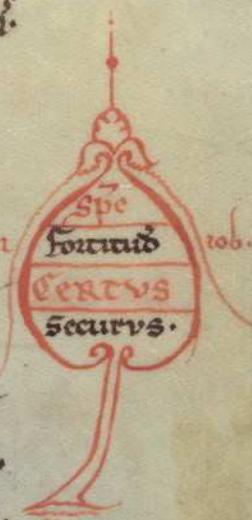 spē
fortitud̄
CERTVS
securus.
rob.